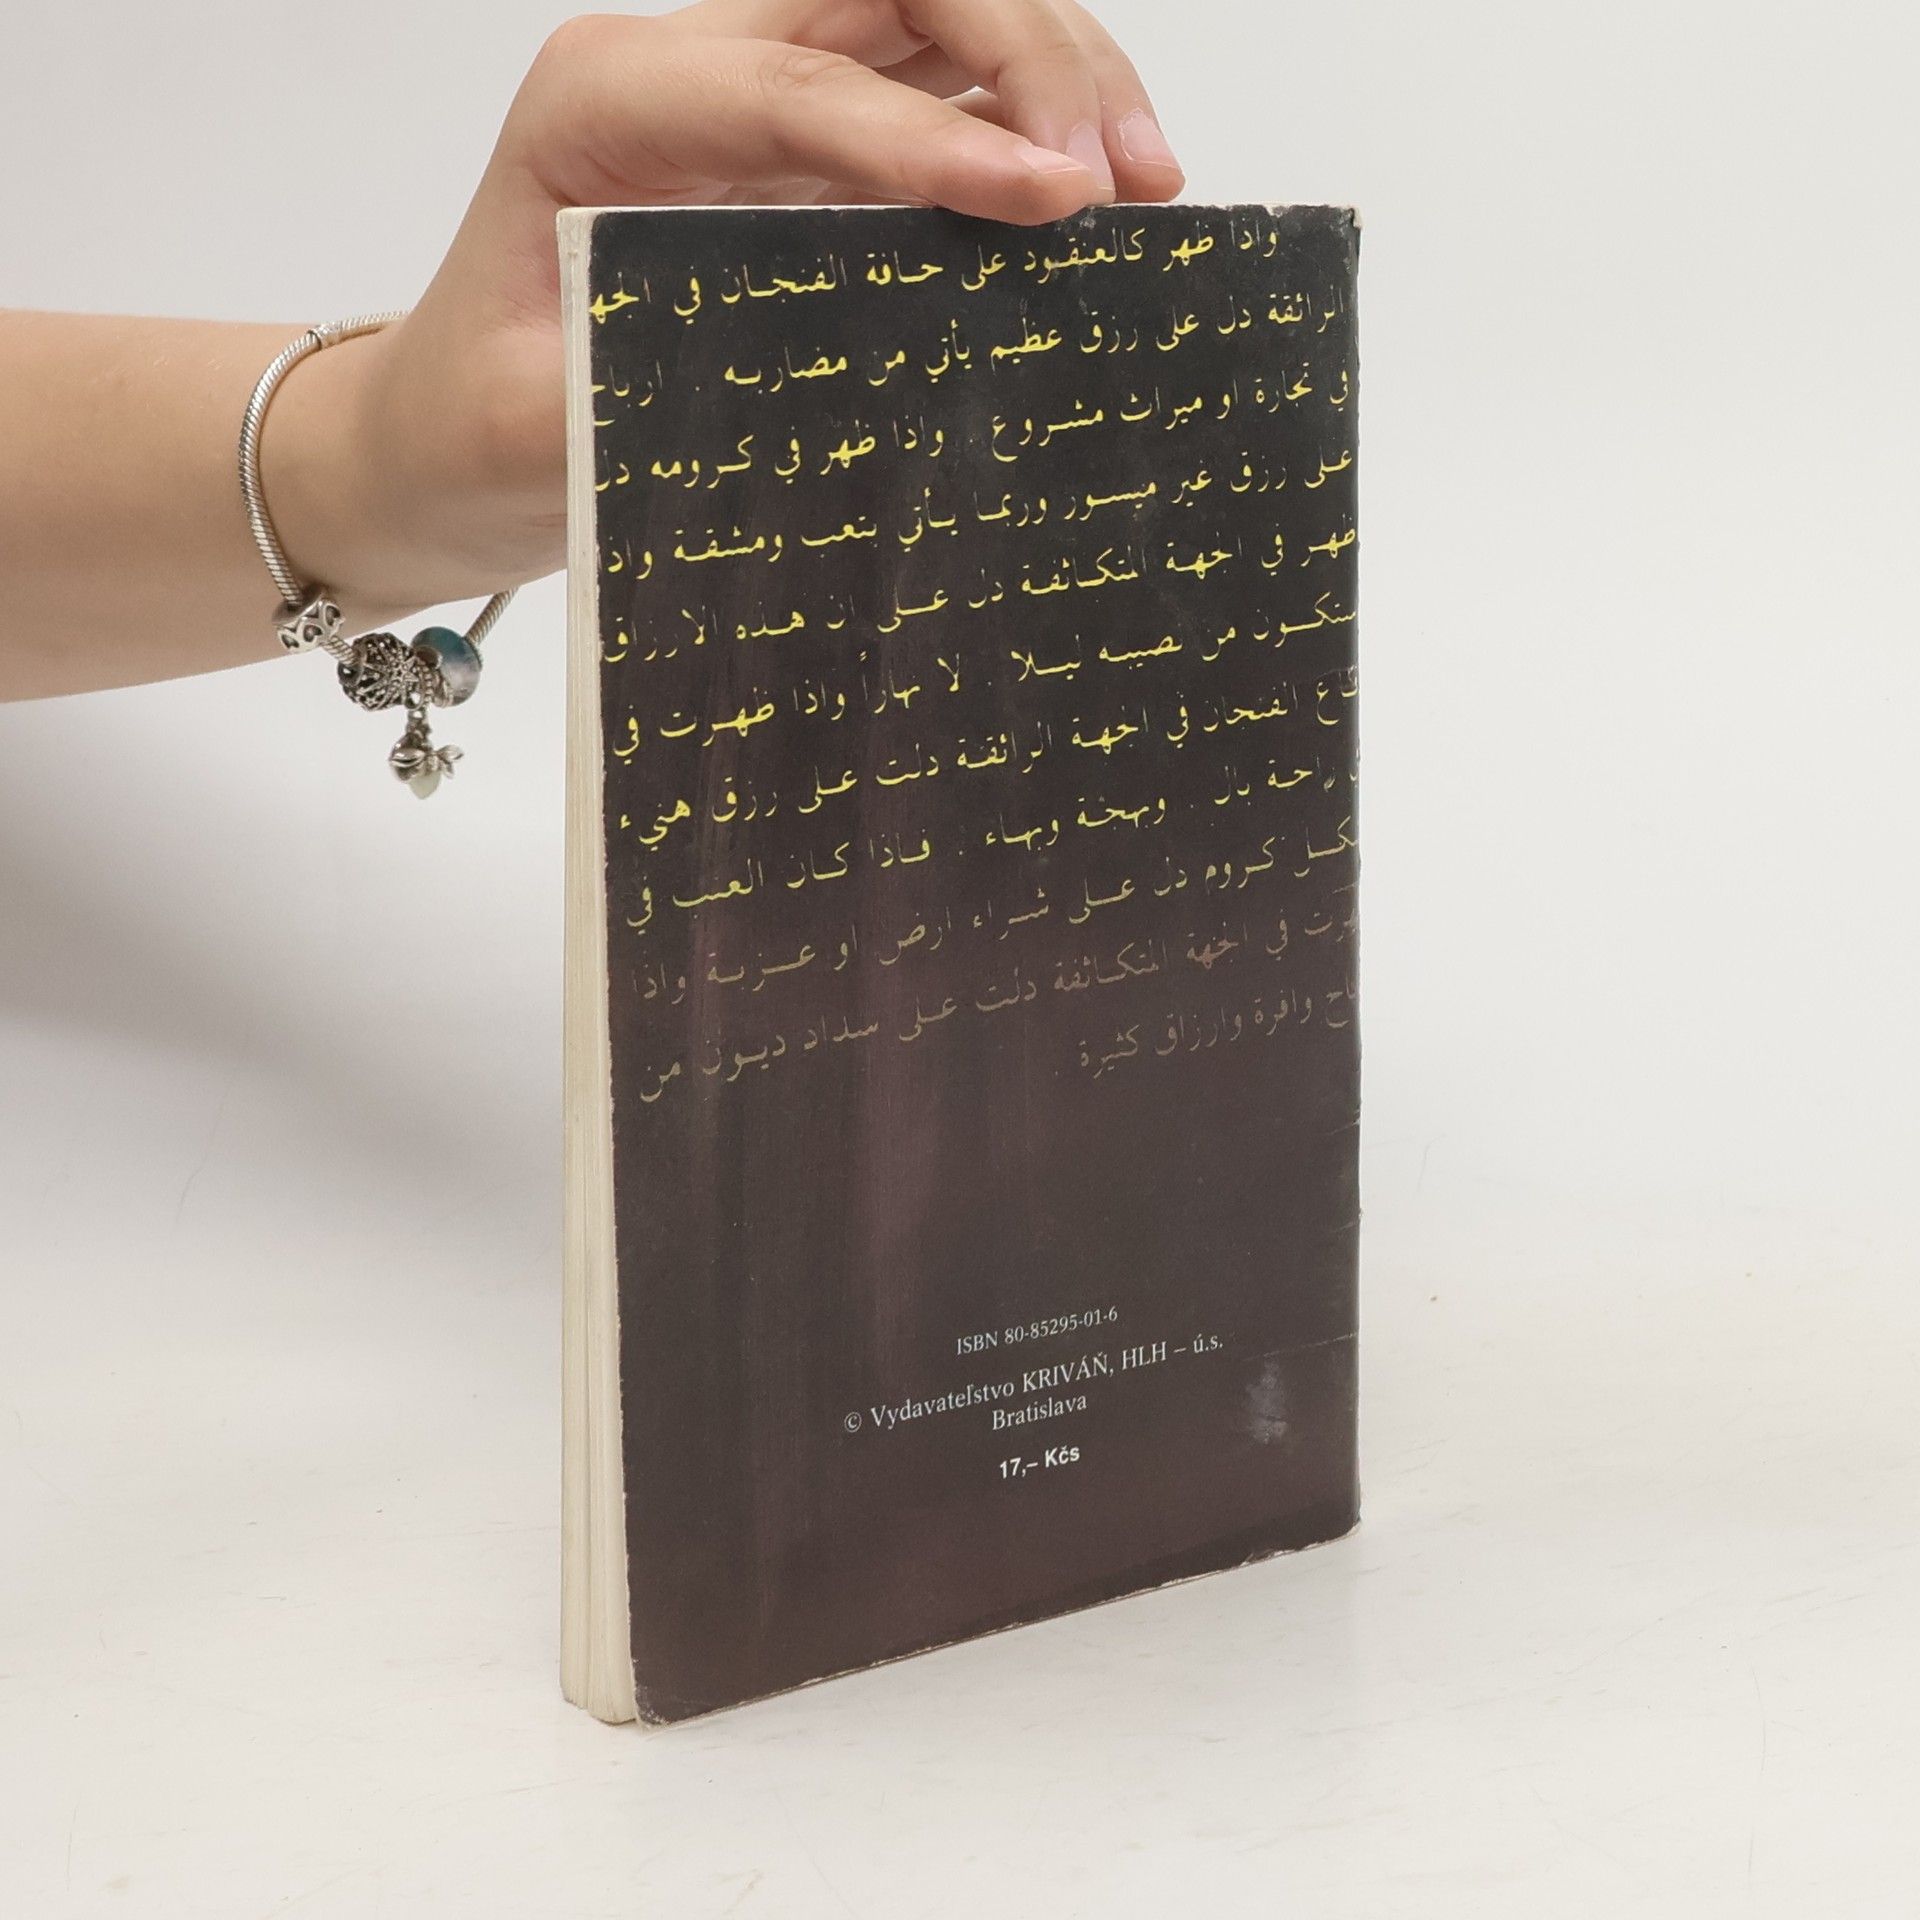 واذا ظهر كالعنقود على حافة الفنجان في الجهـ
الرائقة دل على رزق عظيم يأتي من مضاربه . ارباح
في تجارة او ميراث مشروع . واذا ظهر في كرومه دل
على رزق غير ميسور وربما يأتي بتعب ومشقة واذ
ظهر في الجهة المتكاثفة دل على ان هذه الارزاق
ستكون من نصيبه ليلا . لا نهاراً واذا ظهرت في
الفنجان في الجهة الرائقة دلت على رزق هنيء
راحة بال . وبهجة وبهاء . فاذا كان العنب في
كروم دل على شراء ارض او عزبة واذا
في الجهة المتكاثفة دلت على سداد ديون من
وافرة وارزاق كثيرة .
ISBN 80-85295-01-6
© Vydavateľstvo KRIVÁŇ, HLH – ú.s.
Bratislava
17,– Kčs